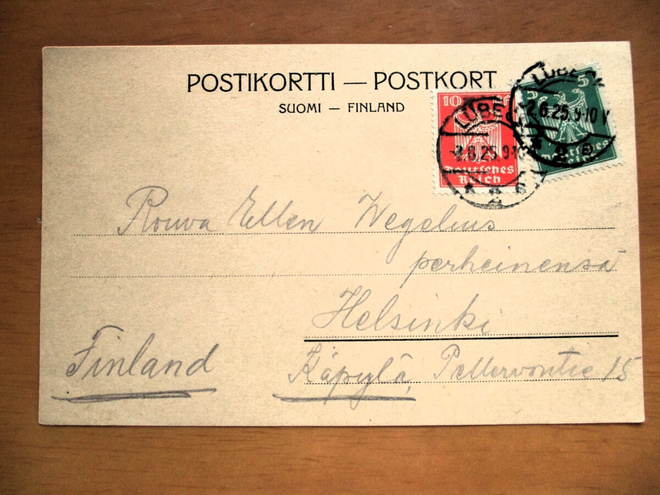 POSTIKORTTI — POSTKORT
SUOMI — FINLAND
10
Deutsches
Reich
5
LÜBECK
-2.6.25.9-10V
LÜBECK
-2.6.25.9-10V
Rouva Ellen Wegelius
perheinensä
Helsinki
Finland
Käpylä, Pellervontie 15